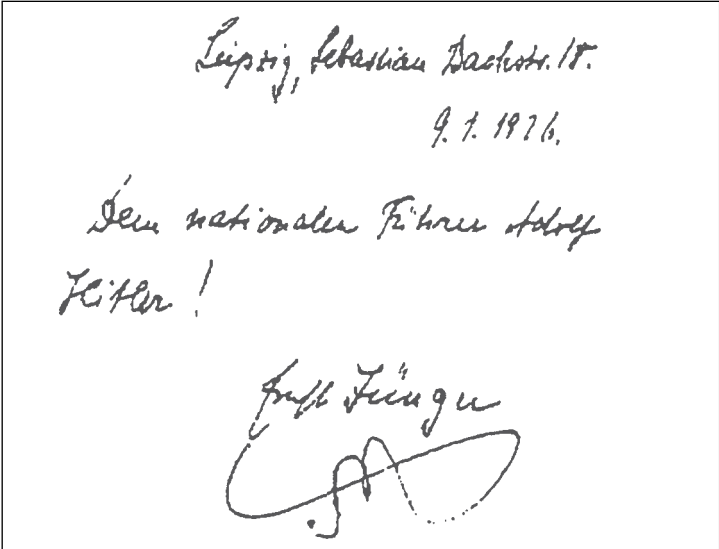 Leipzig, Sebastian Bachstr. 18.
9. 1. 1926.
Dem nationalen Führer Adolf
Hitler!
Ernst Jünger